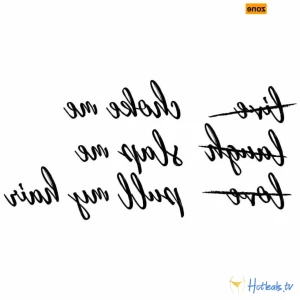 zone
live choke me
laugh slap me
love pull my hair
Hotleaks.tv